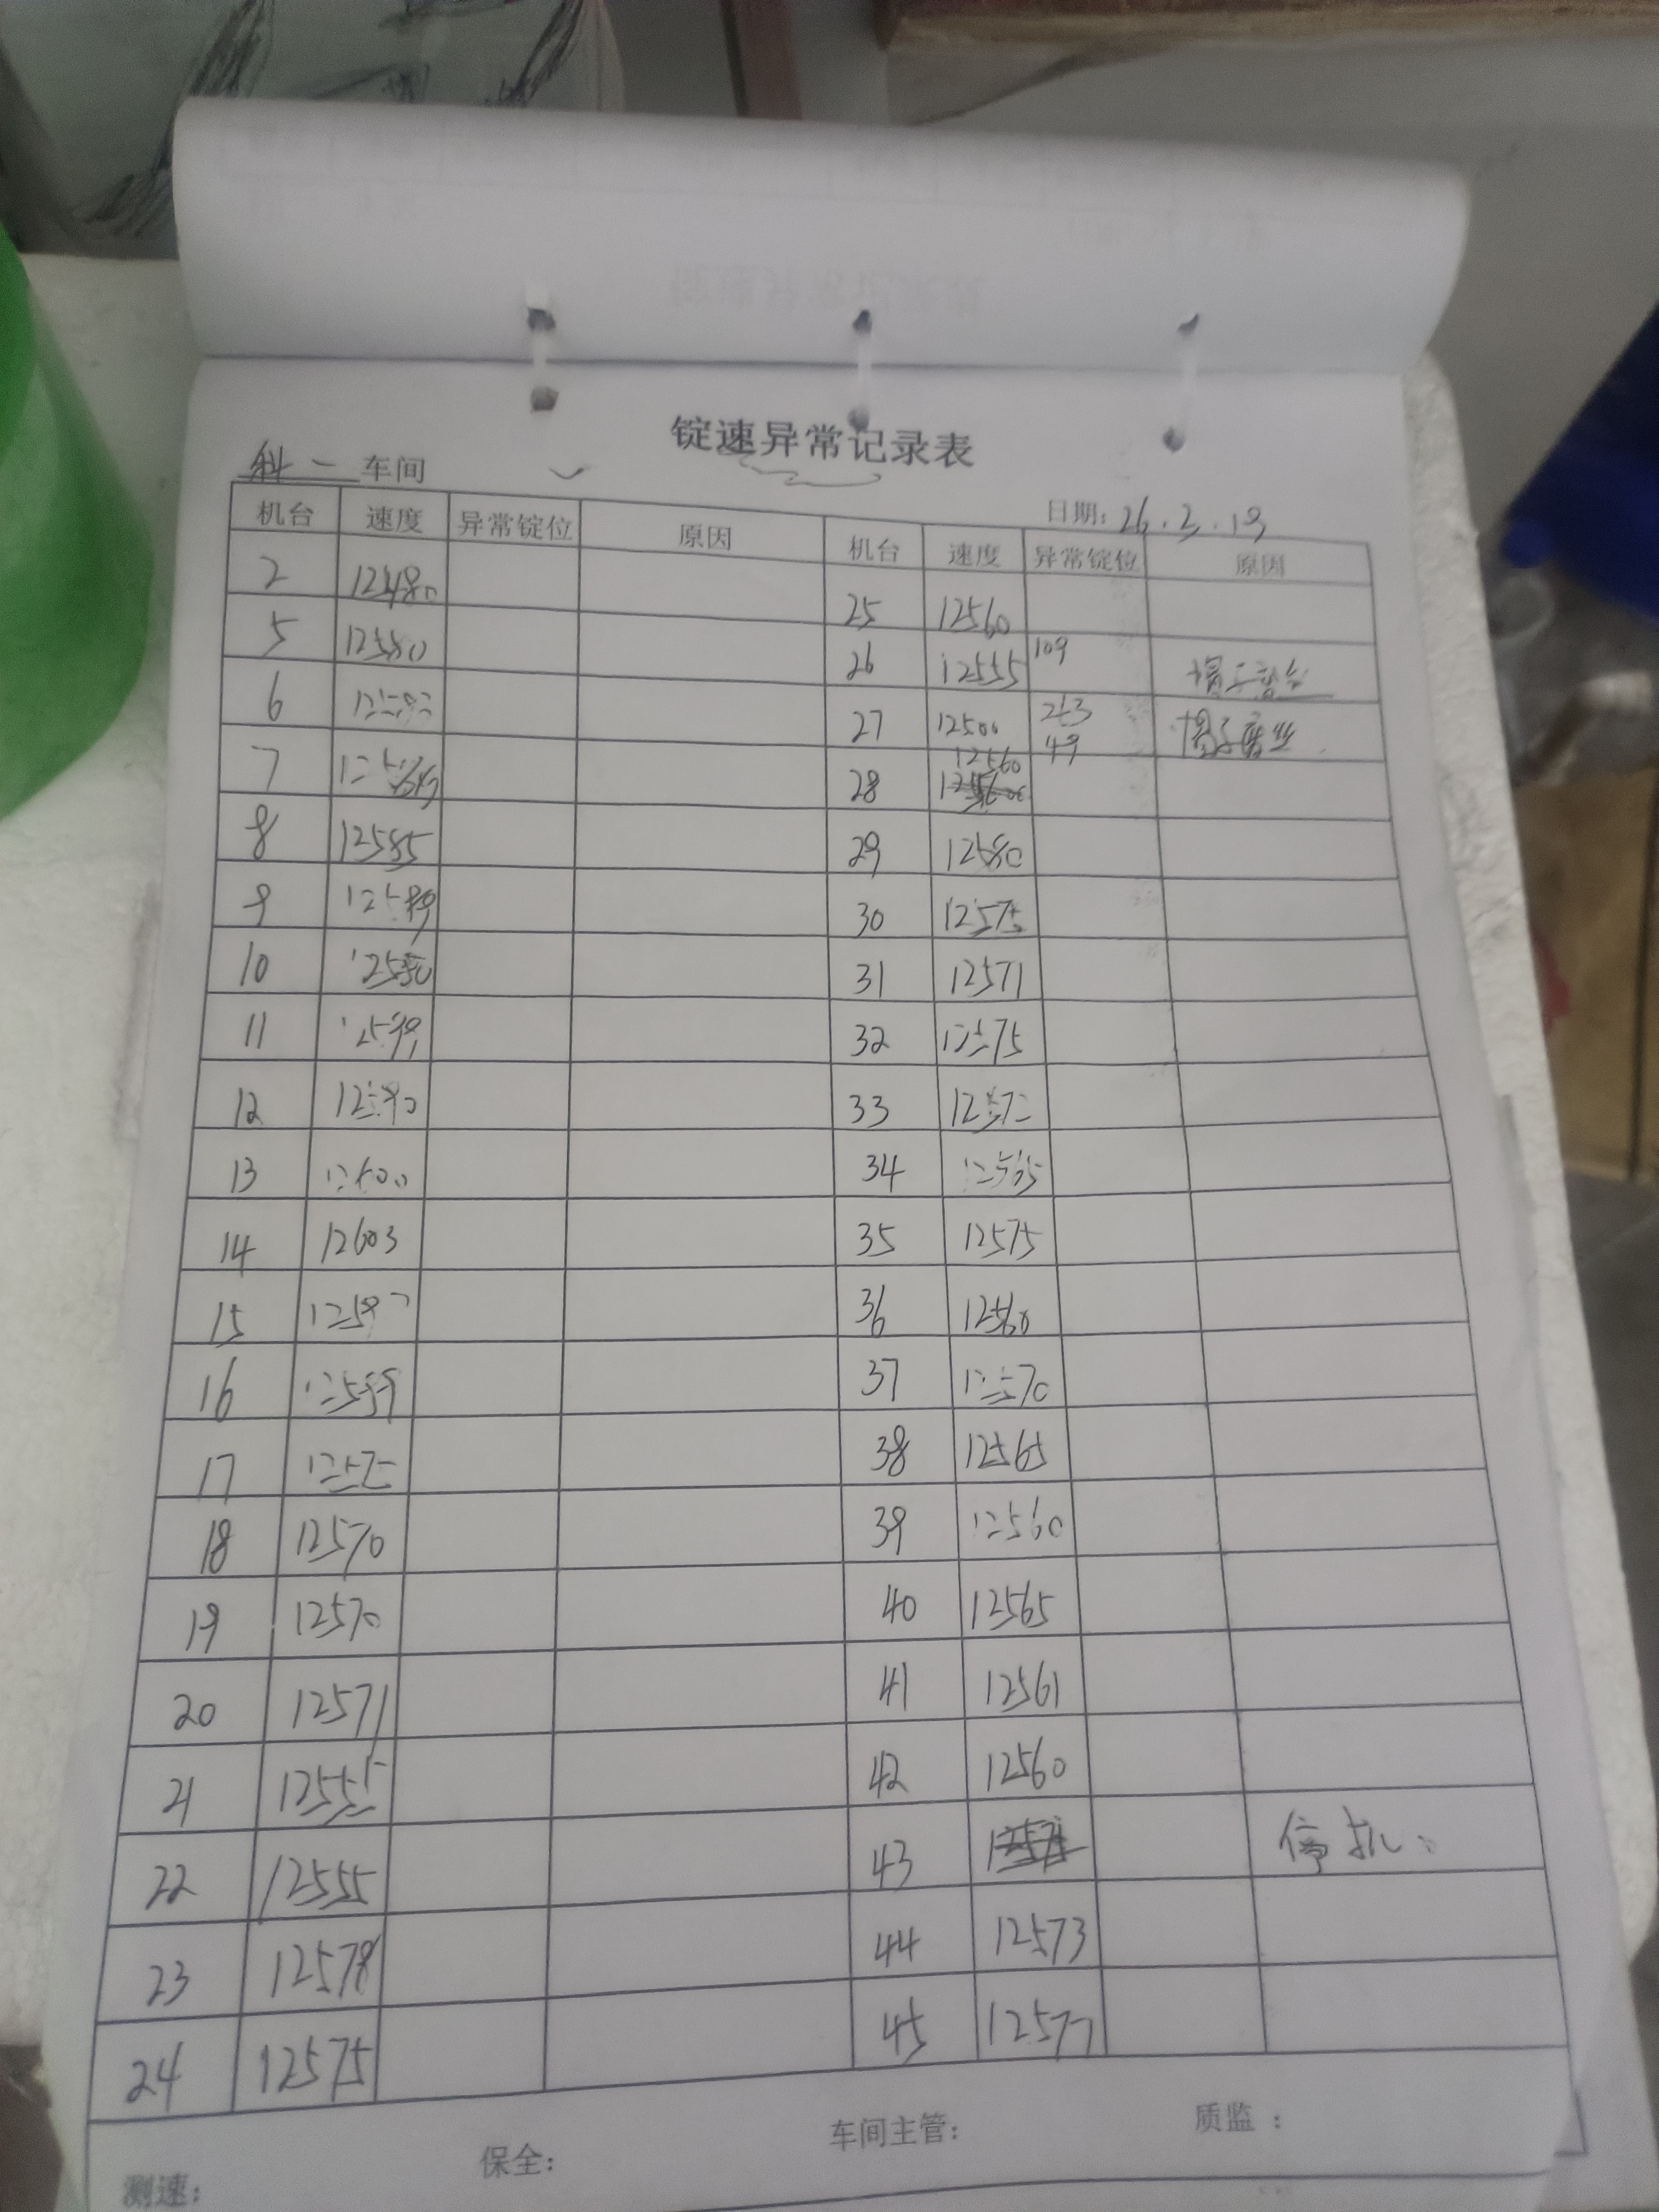 锭速异常记录表
科一 车间
日期: 26.3.19
机台 速度 异常锭位 原因 机台 速度 异常锭位 原因
2 12480 25 12560
5 12580 26 12555 109
6 27 12500 49
7 28 12560
8 12585 29 12580
9 12589 30 12575
10 12580 31 12571
11 32 12575
12 12590 33 12572
13 12600 34 12565
14 12603 35 12575
15 12597 36 12560
16 12599 37 12570
17 12575 38 12565
18 12570 39 12560
19 12570 40 12565
20 12571 41 12561
21 12555 42 12560
22 12555 43 停机
23 12578 44 12573
24 12575 45 12577
测速: 保全: 车间主管: 质监: